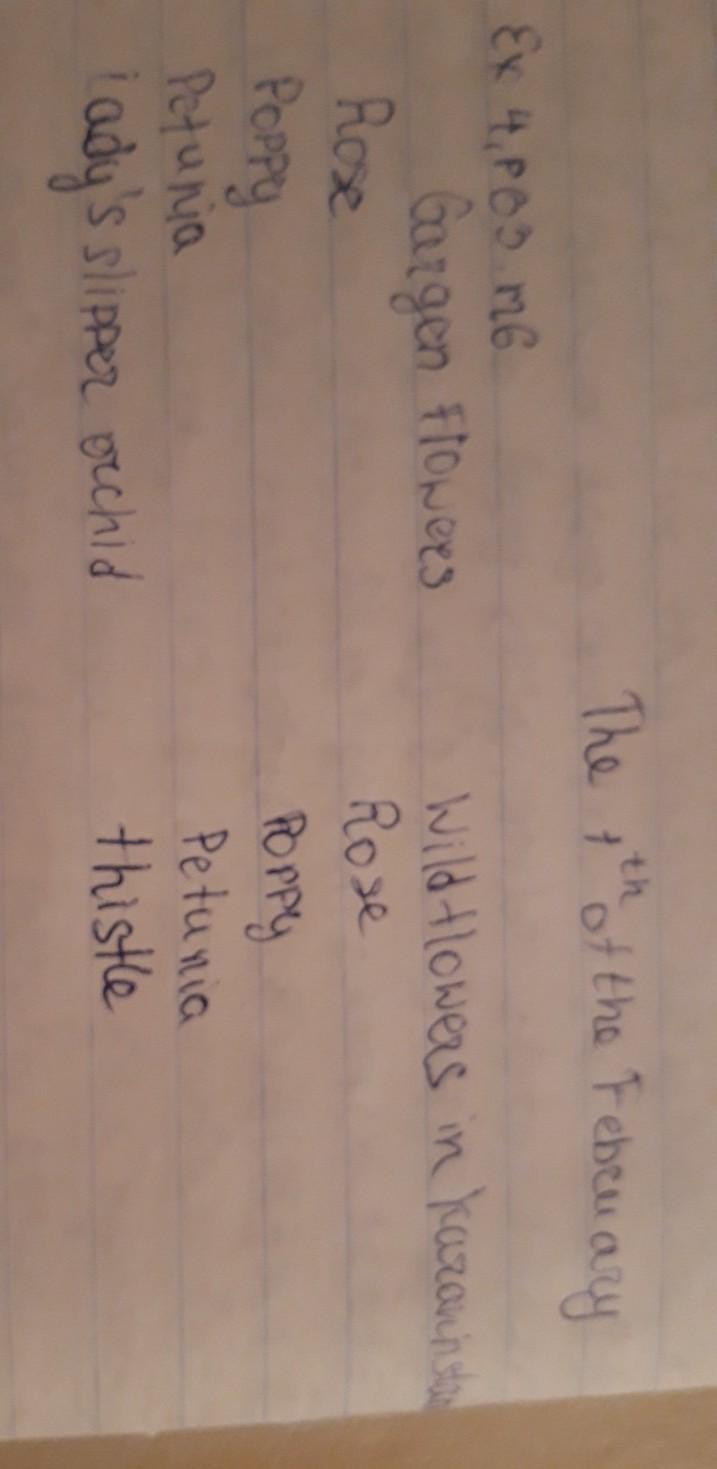 The 1th of the February
Ex 4, P69. m6
Gargen Flowers Wild flowers in
Rose Rose
Poppy Poppy
Petunia Petunia
Lady's slipper orchid thistle